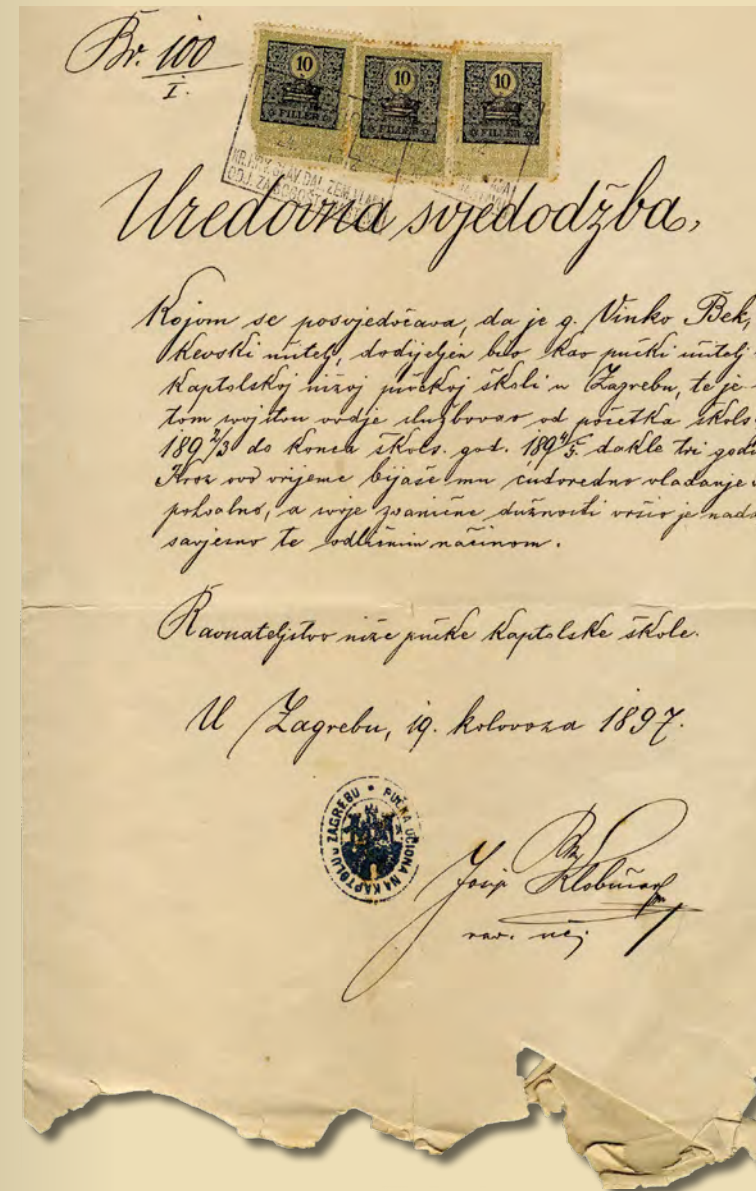 Br. 100
I.
10 10 10
FILLER FILLER FILLER
KR. HRV. SLAV. DAL. ZEM. VLADA
ODJ. ZA BOGOŠT
Uredovna svjedodžba,
Kojom se posvjedočava, da je g. Vinko Bek,
učitelj, dodijeljen bio kao pučki učitelj
Kaptolskoj nižoj pučkoj školi u Zagrebu, te je
tom svojstvu ovdje službovao od početka škols.
189 2/3 do konca škols. god. 189 4/5. dakle tri godi
Kroz ovo vrijeme bijaše mu ćudoredno vladanje
pohvalno, a svoje zvanične dužnosti vršio je
savjesno te odličnim načinom.
Ravnateljstvo niže pučke Kaptolske škole.
U Zagrebu, 19. kolovoza 1897.
PUČKA UČIONA NA KAPTOLU U ZAGREBU
Josip Klobučar
rav. uč.